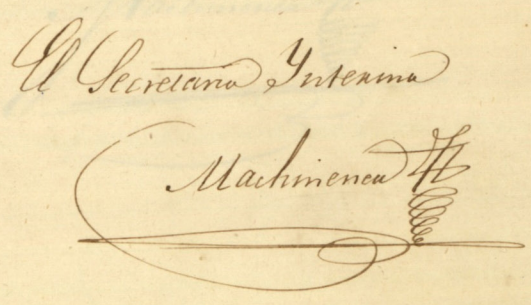 El Secretario Ynterino
Machimena